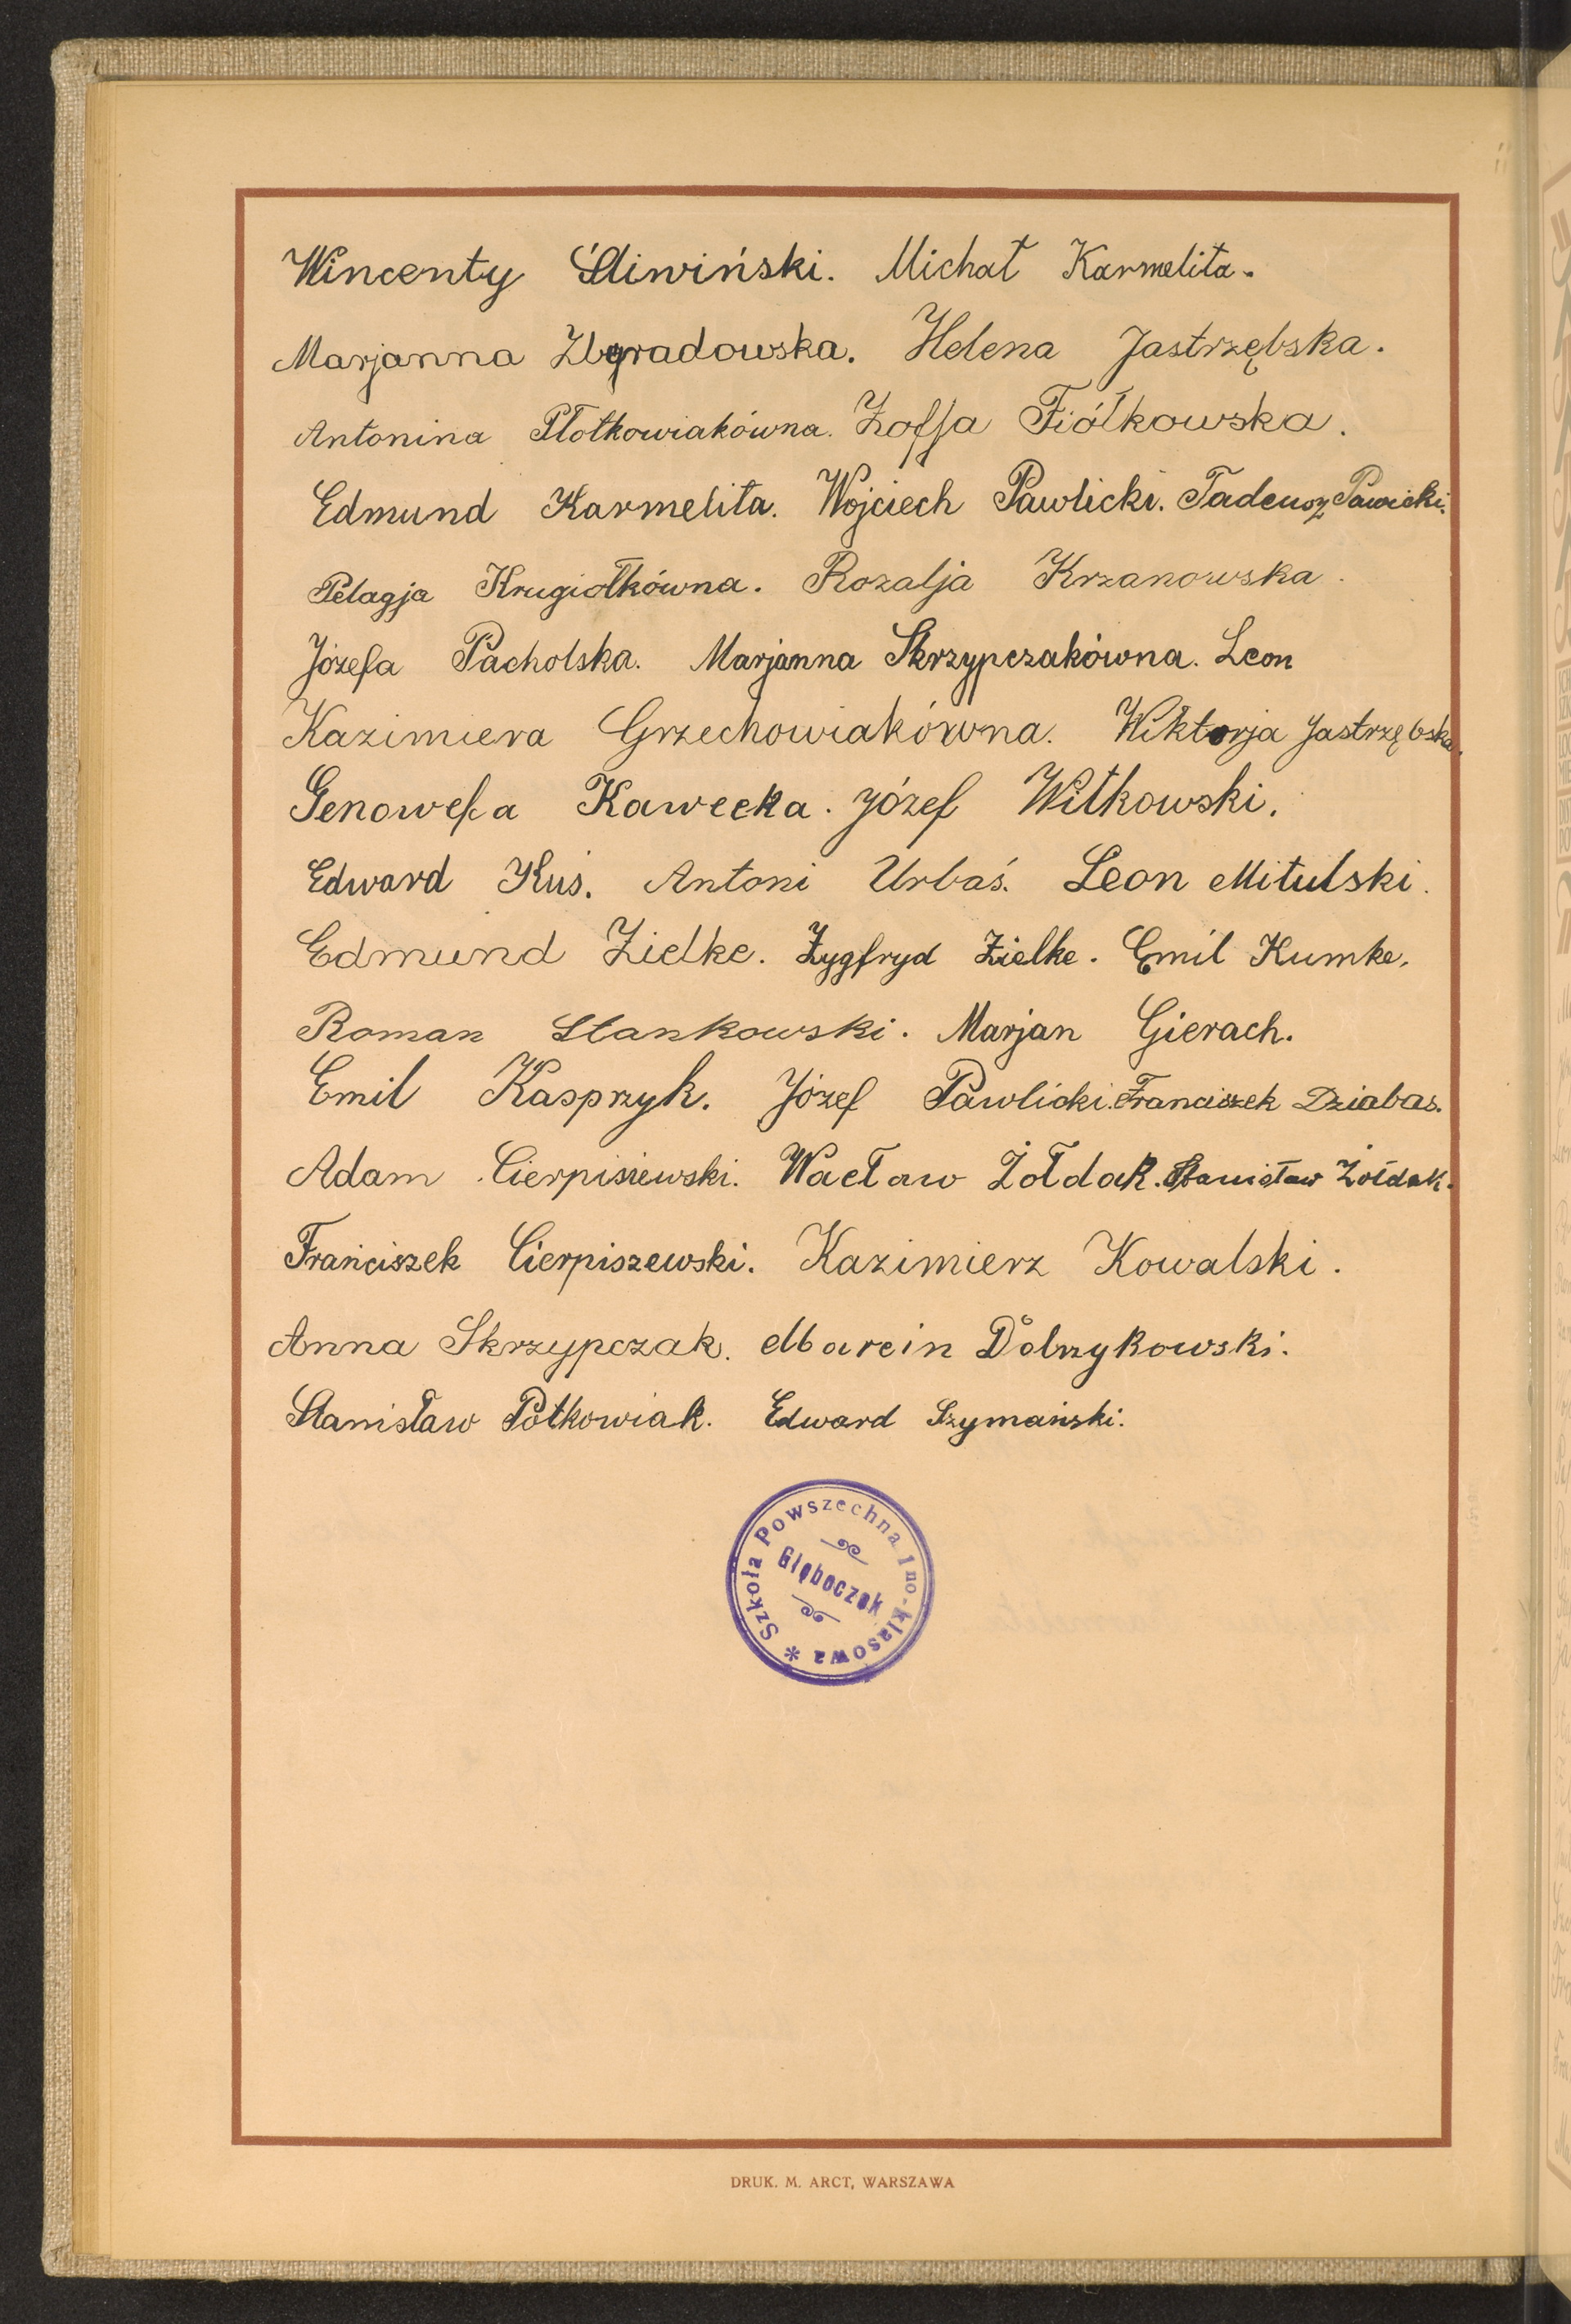 Wincenty Śliwiński. Michał Karmelita.
Marjanna Zbyradowska. Helena Jastrzębska.
Antonina Płotkowiakówna. Zofja Fiółkowska.
Edmund Karmelita. Wojciech Pawlicki. Tadeusz Pawicki.
Pelagja Krugiołkówna. Rozalja Krzanowska.
Józefa Pacholska. Marjanna Skrzypczakówna. Leon
Kazimiera Grzechowiakówna. Wiktorja Jastrzębska.
Genowefa Kawecka. Józef Witkowski.
Edward Kuś. Antoni Urbaś. Leon Mitulski.
Edmund Zielke. Zygfryd Zielke. Emil Kumke.
Roman Stankowski. Marjan Gierach.
Emil Kasprzyk. Józef Pawlicki. Franciszek Dziabas.
Adam Cierpisiewski. Wacław Żołdak. Stanisław Żołdak.
Franciszek Cierpiszewski. Kazimierz Kowalski.
Anna Skrzypczak. Marcin Dobrzykowski.
Stanisław Połkowiak. Edward Szymański.
Szkoła Powszechna 1no-klasowa *
Głęboczek
DRUK. M. ARCT, WARSZAWA